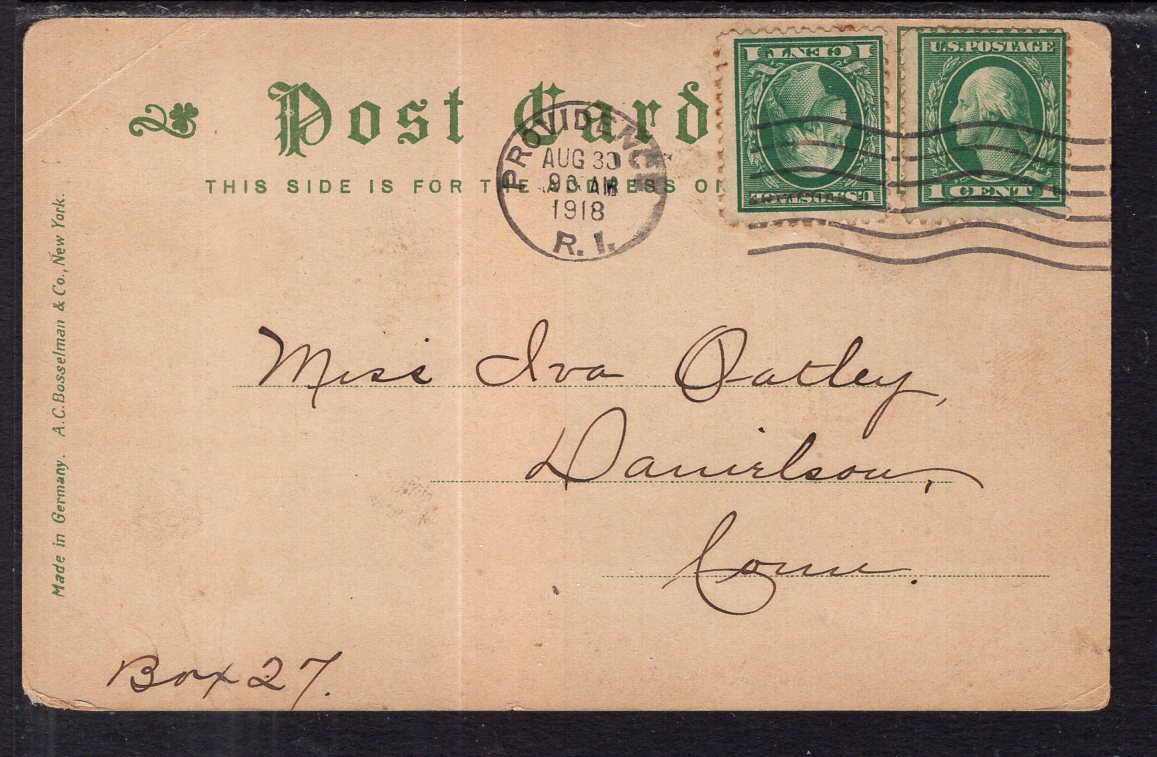 Post Card
THIS SIDE IS FOR THE ADDRESS ON
1 CENT 1
U.S. POSTAGE
U.S. POSTAGE
1 CENT 1
PROVIDENCE
AUG 30
AM
1918
R. I.
Made in Germany. A.C. Bosselman & Co., New York.
Miss Iva Oatley,
Danielson,
Conn.
Box 27.